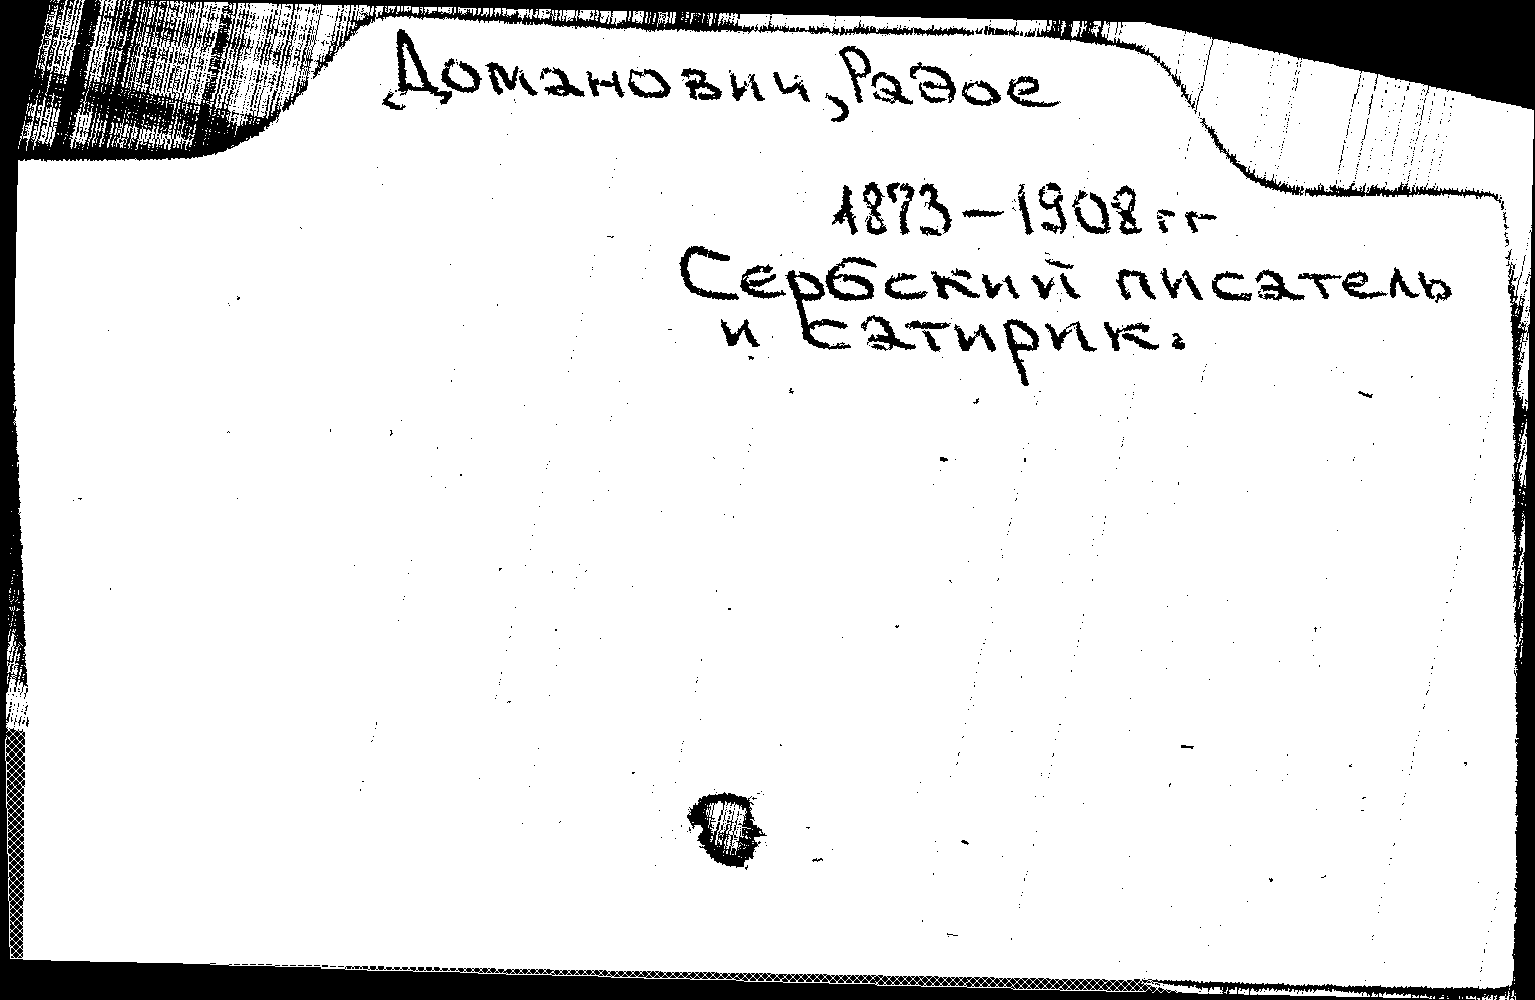 Доманович, Радое
1873-1908гг
Сербский писатель
и сатирик.